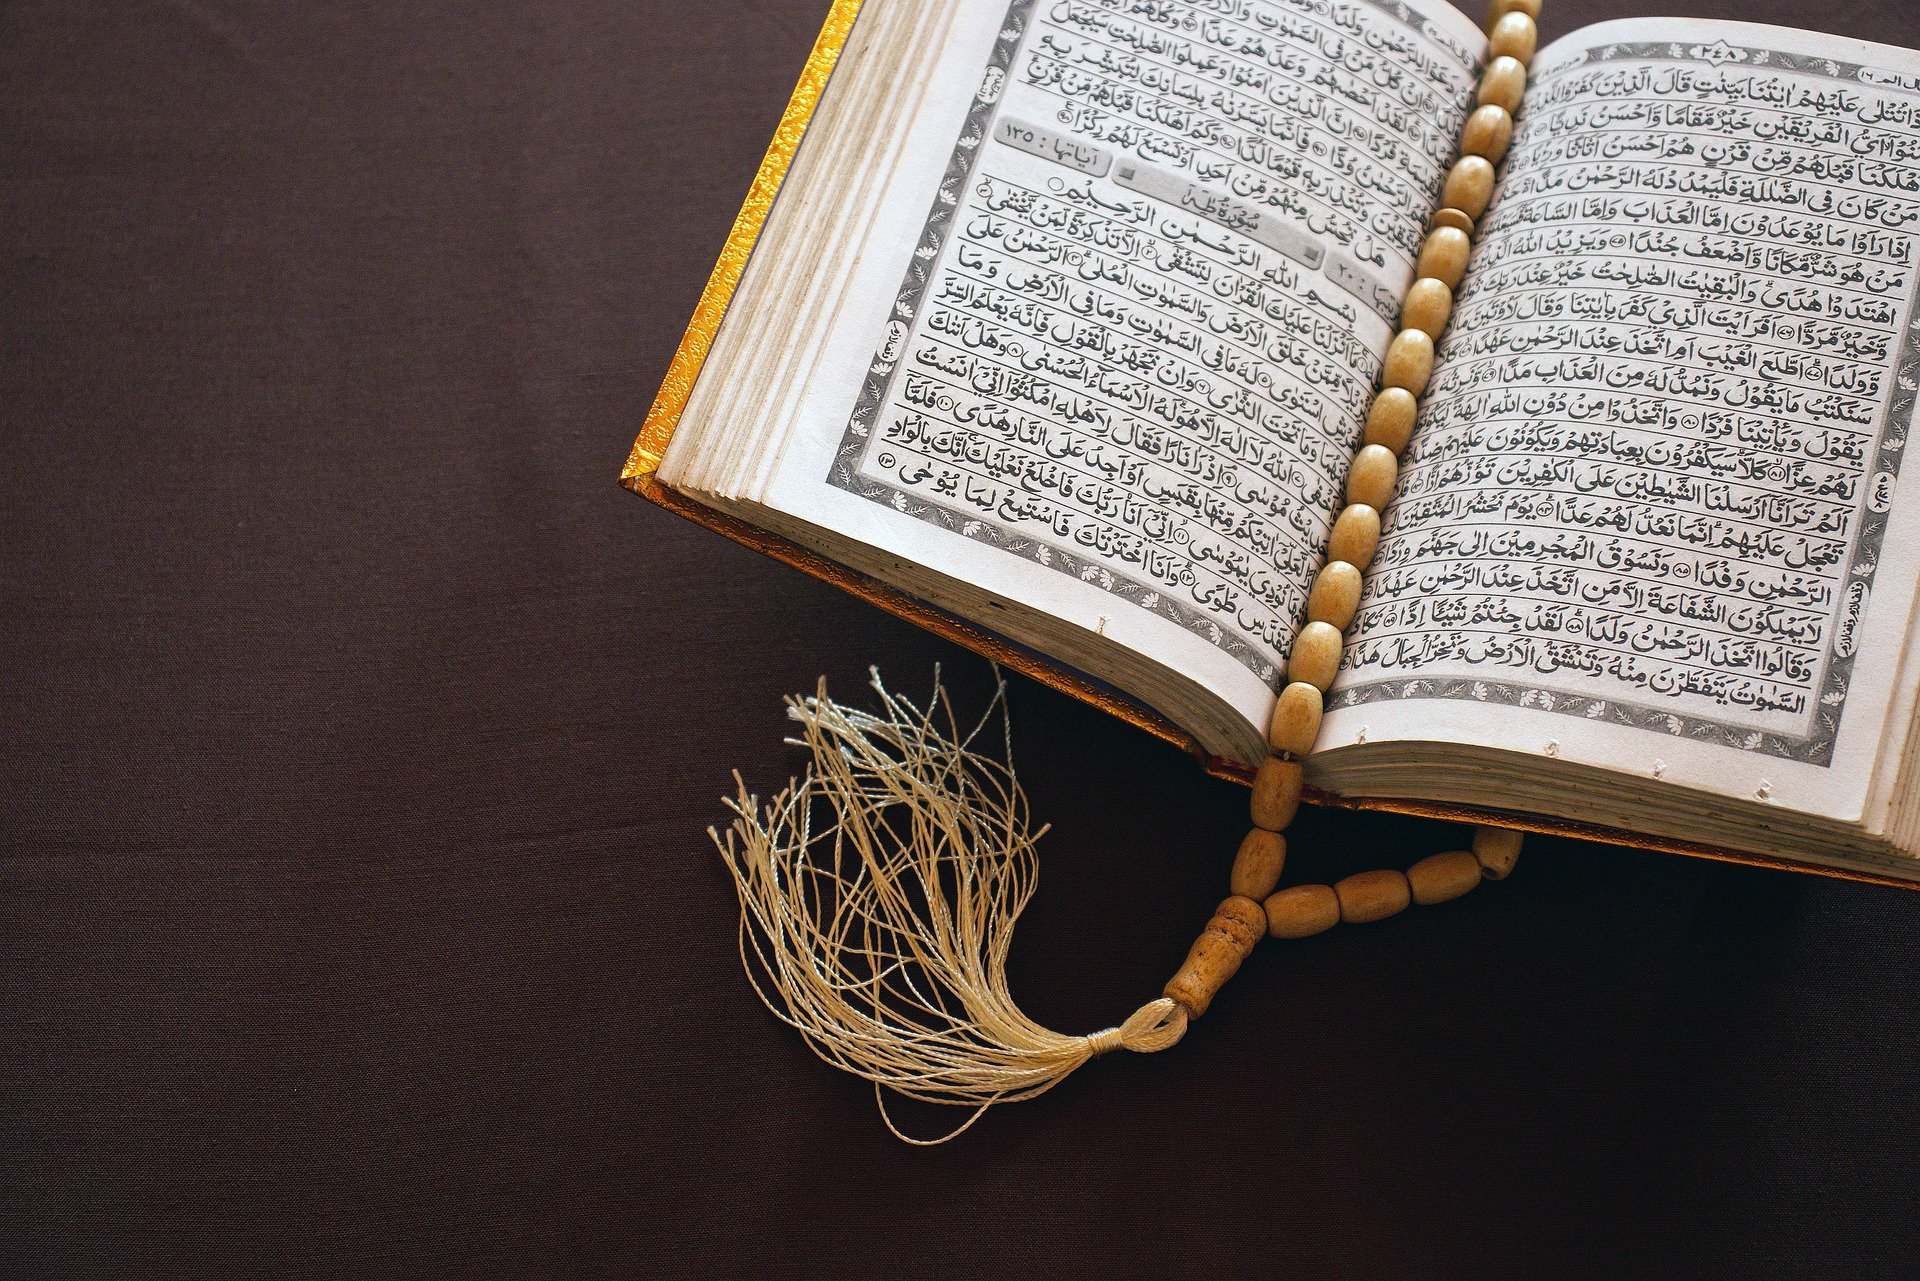 ٢٤٨
تُتْلٰى عَلَيْهِمْ اٰيٰتُنَا بَيِّنٰتٍ قَالَ الَّذِيْنَ كَفَرُوْا لِلَّذِيْنَ
اَيُّ الْفَرِيْقَيْنِ خَيْرٌ مَّقَامًا وَّاَحْسَنُ نَدِيًّا
اَهْلَكْنَا قَبْلَهُمْ مِّنْ قَرْنٍ هُمْ اَحْسَنُ اَثَاثًا وَّرِءْيًا
مَنْ كَانَ فِي الضَّلٰلَةِ فَلْيَمْدُدْ لَهُ الرَّحْمٰنُ مَدًّا
اِذَا رَاَوْا مَا يُوْعَدُوْنَ اِمَّا الْعَذَابَ وَاِمَّا السَّاعَةَ
مَنْ هُوَ شَرٌّ مَّكَانًا وَّاَضْعَفُ جُنْدًا ٧٥ وَيَزِيْدُ اللّٰهُ الَّذِيْنَ
اهْتَدَوْا هُدًى وَالْبٰقِيٰتُ الصّٰلِحٰتُ خَيْرٌ عِنْدَ رَبِّكَ
وَّخَيْرٌ مَّرَدًّا ٧٦ اَفَرَءَيْتَ الَّذِيْ كَفَرَ بِاٰيٰتِنَا وَقَالَ لَاُوْتَيَنَّ
وَّوَلَدًا ٧٧ اَطَّلَعَ الْغَيْبَ اَمِ اتَّخَذَ عِنْدَ الرَّحْمٰنِ عَهْدًا ٧٨
سَنَكْتُبُ مَا يَقُوْلُ وَنَمُدُّ لَهٗ مِنَ الْعَذَابِ مَدًّا ٧٩ وَّنَرِثُهٗ
يَقُوْلُ وَيَاْتِيْنَا فَرْدًا ٨٠ وَاتَّخَذُوْا مِنْ دُوْنِ اللّٰهِ اٰلِهَةً
لَهُمْ عِزًّا ٨١ كَلَّا سَيَكْفُرُوْنَ بِعِبَادَتِهِمْ وَيَكُوْنُوْنَ عَلَيْهِمْ ضِدًّا
اَلَمْ تَرَ اَنَّا اَرْسَلْنَا الشَّيٰطِيْنَ عَلَى الْكٰفِرِيْنَ تَؤُزُّهُمْ اَزًّا ٨٣ فَلَا
تَعْجَلْ عَلَيْهِمْ اِنَّمَا نَعُدُّ لَهُمْ عَدًّا ٨٤ يَوْمَ نَحْشُرُ الْمُتَّقِيْنَ اِلَى
الرَّحْمٰنِ وَفْدًا ٨٥ وَّنَسُوْقُ الْمُجْرِمِيْنَ اِلٰى جَهَنَّمَ وِرْدًا
لَا يَمْلِكُوْنَ الشَّفَاعَةَ اِلَّا مَنِ اتَّخَذَ عِنْدَ الرَّحْمٰنِ عَهْدًا
وَقَالُوا اتَّخَذَ الرَّحْمٰنُ وَلَدًا ٨٨ لَقَدْ جِئْتُمْ شَيْئًا اِدًّا ٨٩ تَكَادُ
السَّمٰوٰتُ يَتَفَطَّرْنَ مِنْهُ وَتَنْشَقُّ الْاَرْضُ وَتَخِرُّ الْجِبَالُ هَدًّا ٩٠
دَعَوْا لِلرَّحْمٰنِ وَلَدًا
اِنْ كُلُّ مَنْ فِي السَّمٰوٰتِ وَالْاَرْضِ
لَقَدْ اَحْصٰهُمْ وَعَدَّهُمْ عَدًّا ٩٤ وَكُلُّهُمْ اٰتِيْهِ
فَرْدًا ٩٥ اِنَّ الَّذِيْنَ اٰمَنُوْا وَعَمِلُوا الصّٰلِحٰتِ سَيَجْعَلُ
الرَّحْمٰنُ وُدًّا ٩٦ فَاِنَّمَا يَسَّرْنٰهُ بِلِسَانِكَ لِتُبَشِّرَ بِهِ
وَتُنْذِرَ بِهٖ قَوْمًا لُّدًّا ٩٧ وَكَمْ اَهْلَكْنَا قَبْلَهُمْ مِّنْ قَرْنٍ
هَلْ تُحِسُّ مِنْهُمْ مِّنْ اَحَدٍ اَوْ تَسْمَعُ لَهُمْ رِكْزًا ٩٨
سُوْرَةُ طٰهٰ
اٰيَاتُهَا : ١٣٥
بِسْمِ اللّٰهِ الرَّحْمٰنِ الرَّحِيْمِ
مَا اَنْزَلْنَا عَلَيْكَ الْقُرْاٰنَ لِتَشْقٰى ٢ اِلَّا تَذْكِرَةً لِّمَنْ يَّخْشٰى ٣
مِّمَّنْ خَلَقَ الْاَرْضَ وَالسَّمٰوٰتِ الْعُلٰى ٤ اَلرَّحْمٰنُ عَلَى
الْعَرْشِ اسْتَوٰى ٥ لَهٗ مَا فِي السَّمٰوٰتِ وَمَا فِي الْاَرْضِ وَمَا
بَيْنَهُمَا وَمَا تَحْتَ الثَّرٰى ٦ وَاِنْ تَجْهَرْ بِالْقَوْلِ فَاِنَّهٗ يَعْلَمُ السِّرَّ
وَاَخْفٰى ٧ اَللّٰهُ لَا اِلٰهَ اِلَّا هُوَ لَهُ الْاَسْمَآءُ الْحُسْنٰى ٨ وَهَلْ اَتٰىكَ
حَدِيْثُ مُوْسٰى ٩ اِذْ رَاٰ نَارًا فَقَالَ لِاَهْلِهِ امْكُثُوْا اِنِّيْ اٰنَسْتُ
لَّعَلِّيْ اٰتِيْكُمْ مِّنْهَا بِقَبَسٍ اَوْ اَجِدُ عَلَى النَّارِ هُدًى ١٠ فَلَمَّا
اَتٰىهَا نُوْدِيَ يٰمُوْسٰى ١١ اِنِّيْ اَنَا رَبُّكَ فَاخْلَعْ نَعْلَيْكَ اِنَّكَ بِالْوَادِ
الْمُقَدَّسِ طُوًى ١٢ وَاَنَا اخْتَرْتُكَ فَاسْتَمِعْ لِمَا يُوْحٰى ١٣